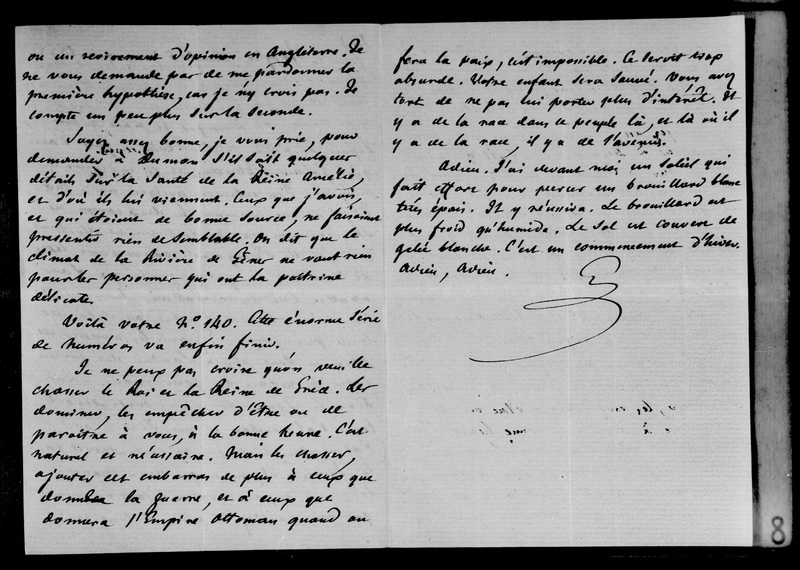 ou un revirement d'opinion en Angleterre. Je
ne vous demande pas de me pardonner la
première hypothèse, car je n'y crois pas. Je
compte un peu plus sur la seconde.
Soyez assez bonne, je vous prie, pour
demander à Dumon s'il sait quelques
détails sur la santé de la Reine Amélie,
et d'où ils lui viennent. Ceux que j'avois,
et qui étoient de bonne source, ne faisoient
pressentir rien de semblable. On dit que le
climat de la Rivière de Gênes ne vaut rien
pour les personnes qui ont la poitrine
délicate.
Voilà votre No. 140. Cette énorme série
de numéros va enfin finir.
Je ne peux pas croire qu'on veuille
chasser le Roi et la Reine de Grèce. Les
dominer, les empêcher d'être ou de
paroître à vous, à la bonne heure. C'est
naturel et nécessaire. Mais les chasser,
ajouter cet embarras de plus à ceux que
donne la guerre, et à ceux que
donnera l'Empire Ottoman quand on
fera la paix, c'est impossible. Ce seroit trop
absurde. Votre enfant sera sauvé. Vous avez
tort de ne pas lui porter plus d'intérêt. Il
y a de la race dans ce peuple là, et là où il
y a de la race, il y a de l'avenir.
Adieu. J'ai devant moi un soleil qui
fait effort pour percer un brouillard blanc
très épais. Il y réussira. Le brouillard est
plus froid qu'humide. Le sol est couvert de
gelée blanche. C'est un commencement d'hiver.
Adieu, Adieu.
8